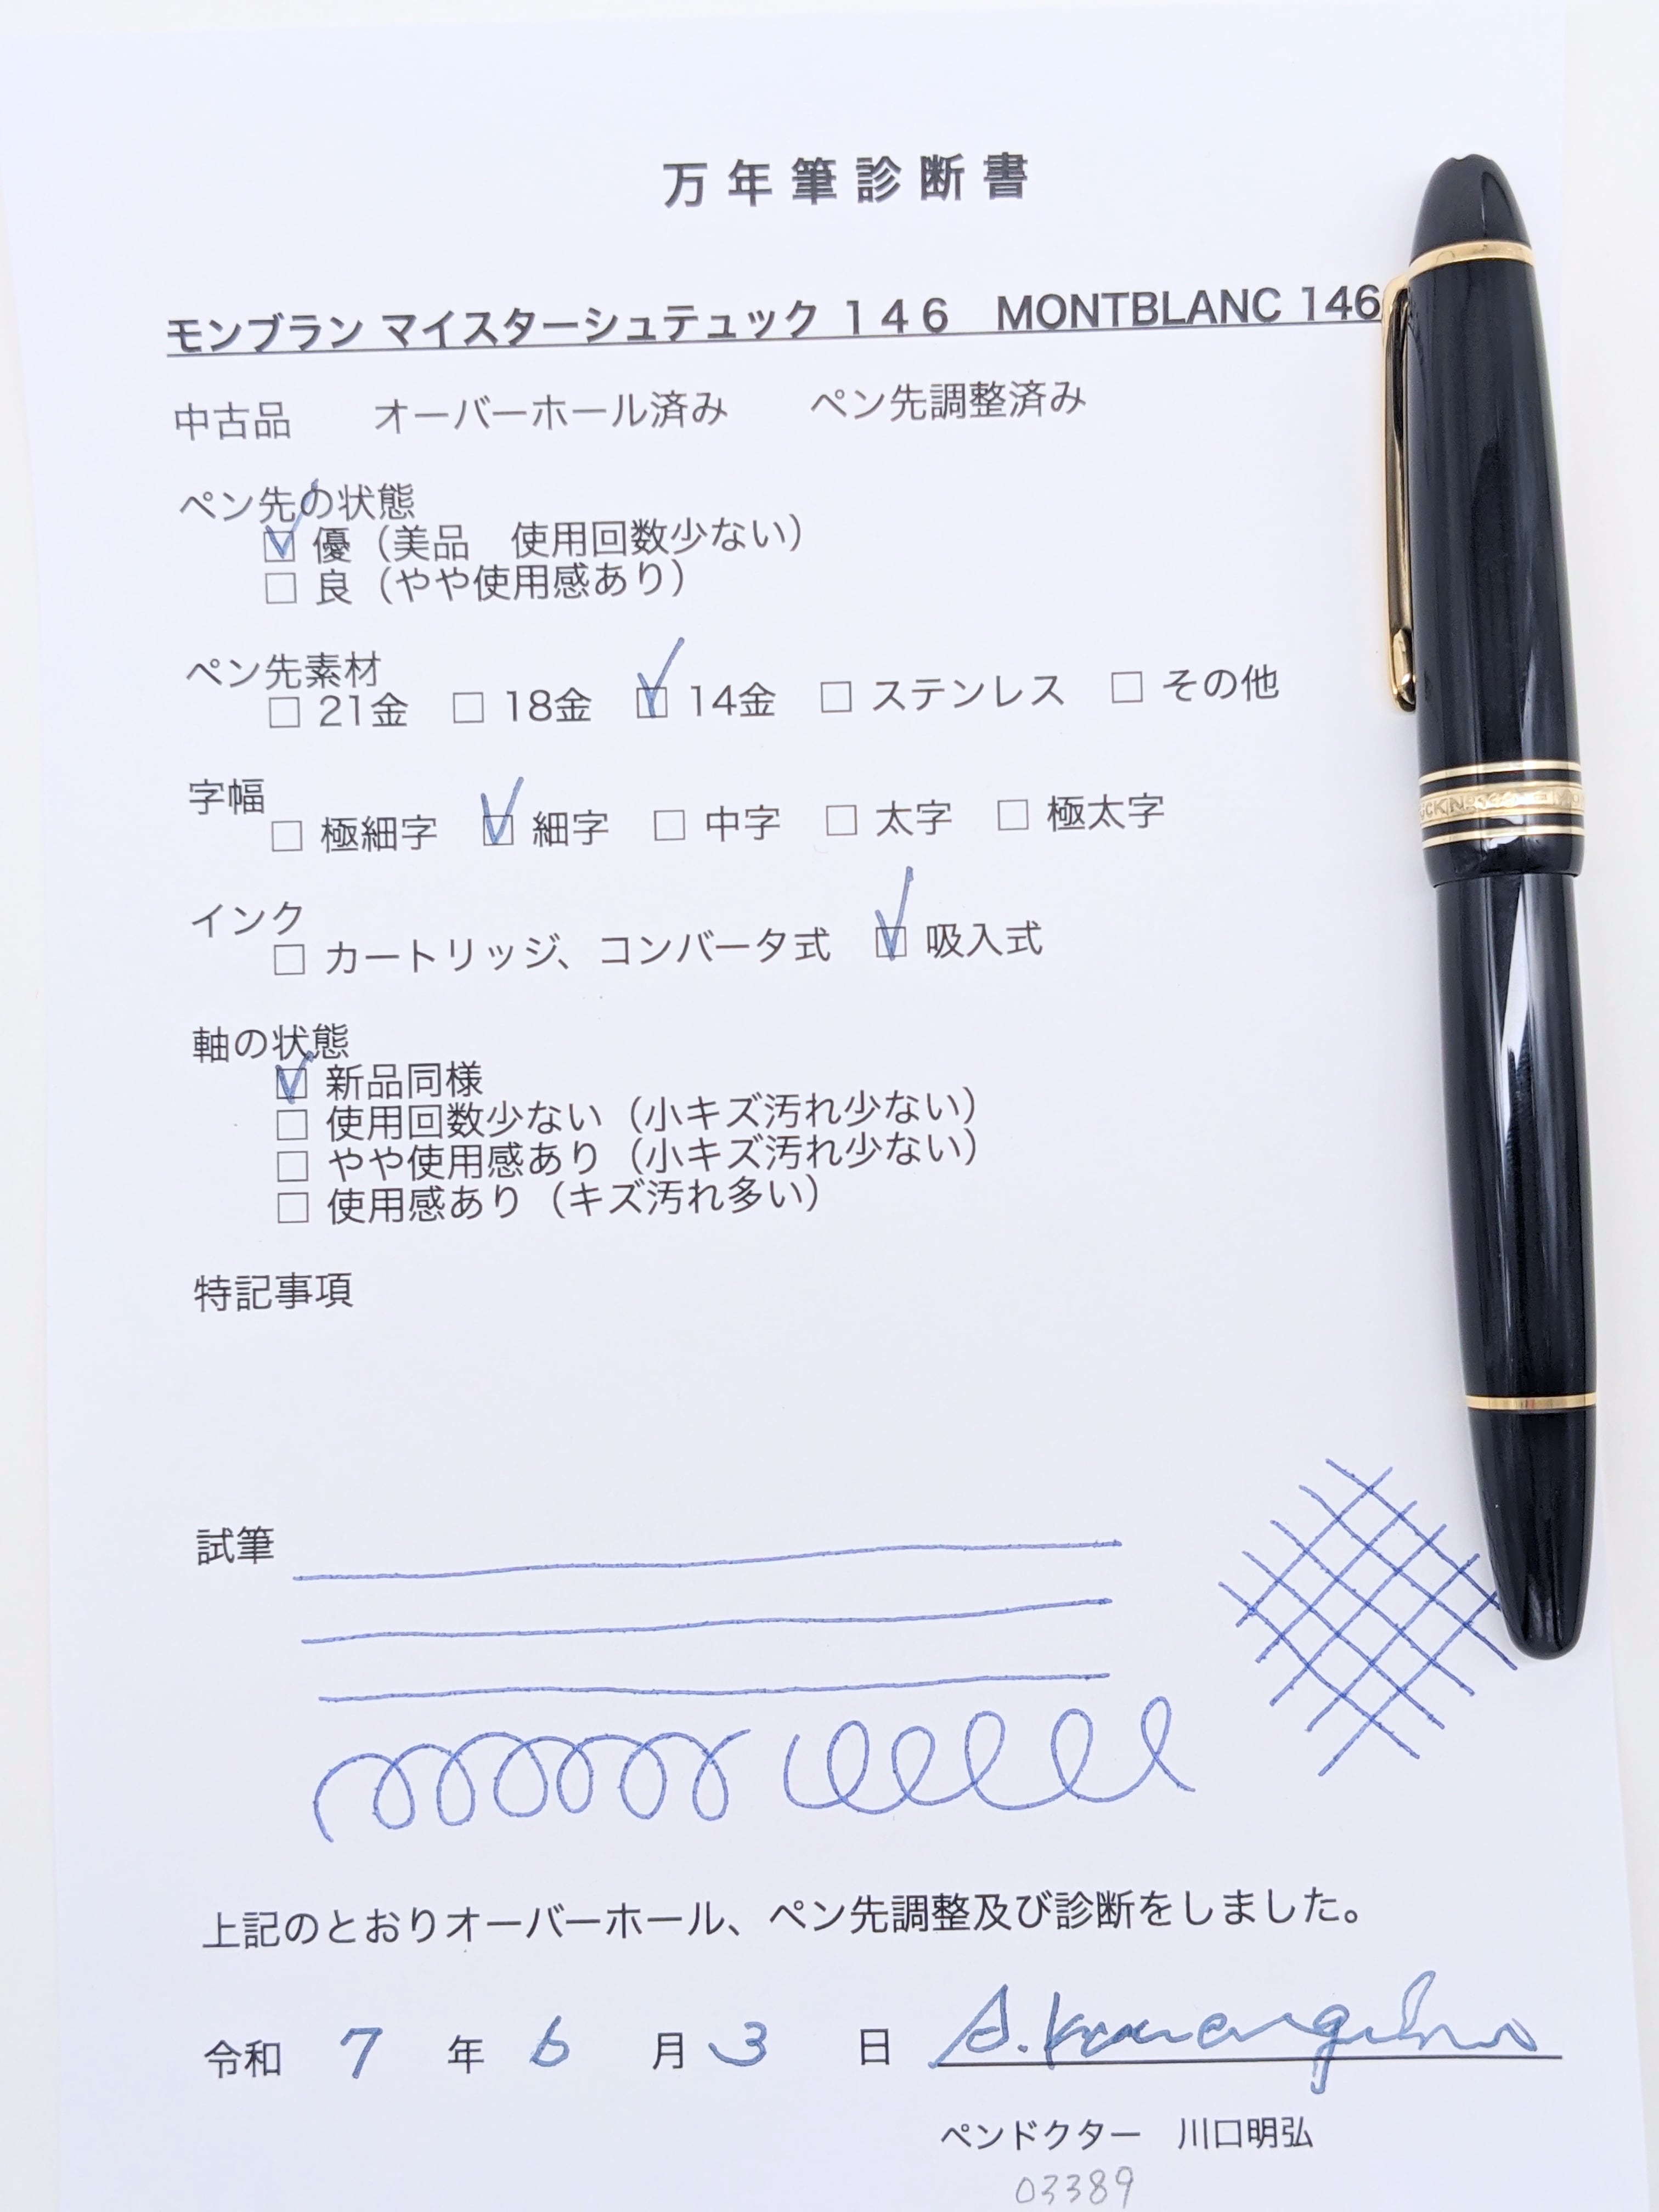 万年筆診断書
モンブラン マイスターシュテュック 146 MONTBLANC 146
中古品 オーバーホール済み ペン先調整済み
ペン先の状態
☑ 優（美品 使用回数少ない）
□ 良（やや使用感あり）
ペン先素材
□ 21金 □ 18金 ☑ 14金 □ ステンレス □ その他
字幅
□ 極細字 ☑ 細字 □ 中字 □ 太字 □ 極太字
インク
□ カートリッジ、コンバータ式 ☑ 吸入式
軸の状態
☑ 新品同様
□ 使用回数少ない（小キズ汚れ少ない）
□ やや使用感あり（小キズ汚れ少ない）
□ 使用感あり（キズ汚れ多い）
特記事項
試筆
上記のとおりオーバーホール、ペン先調整及び診断をしました。
令和 7 年 6 月 3 日
ペンドクター 川口明弘
03389